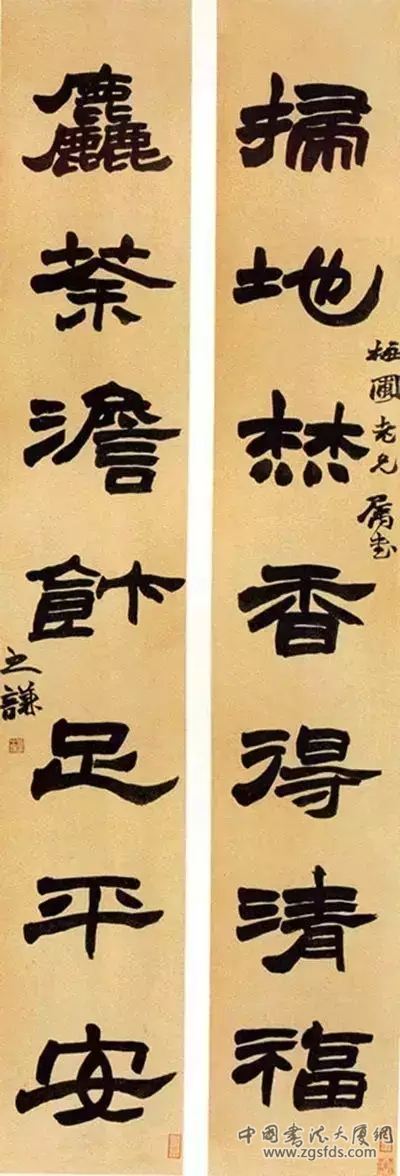 掃地焚香得清福
梅圃老兄屬書
麤荼澹飰足平安
之謙
中國書法大廈網
www.zgsfds.com